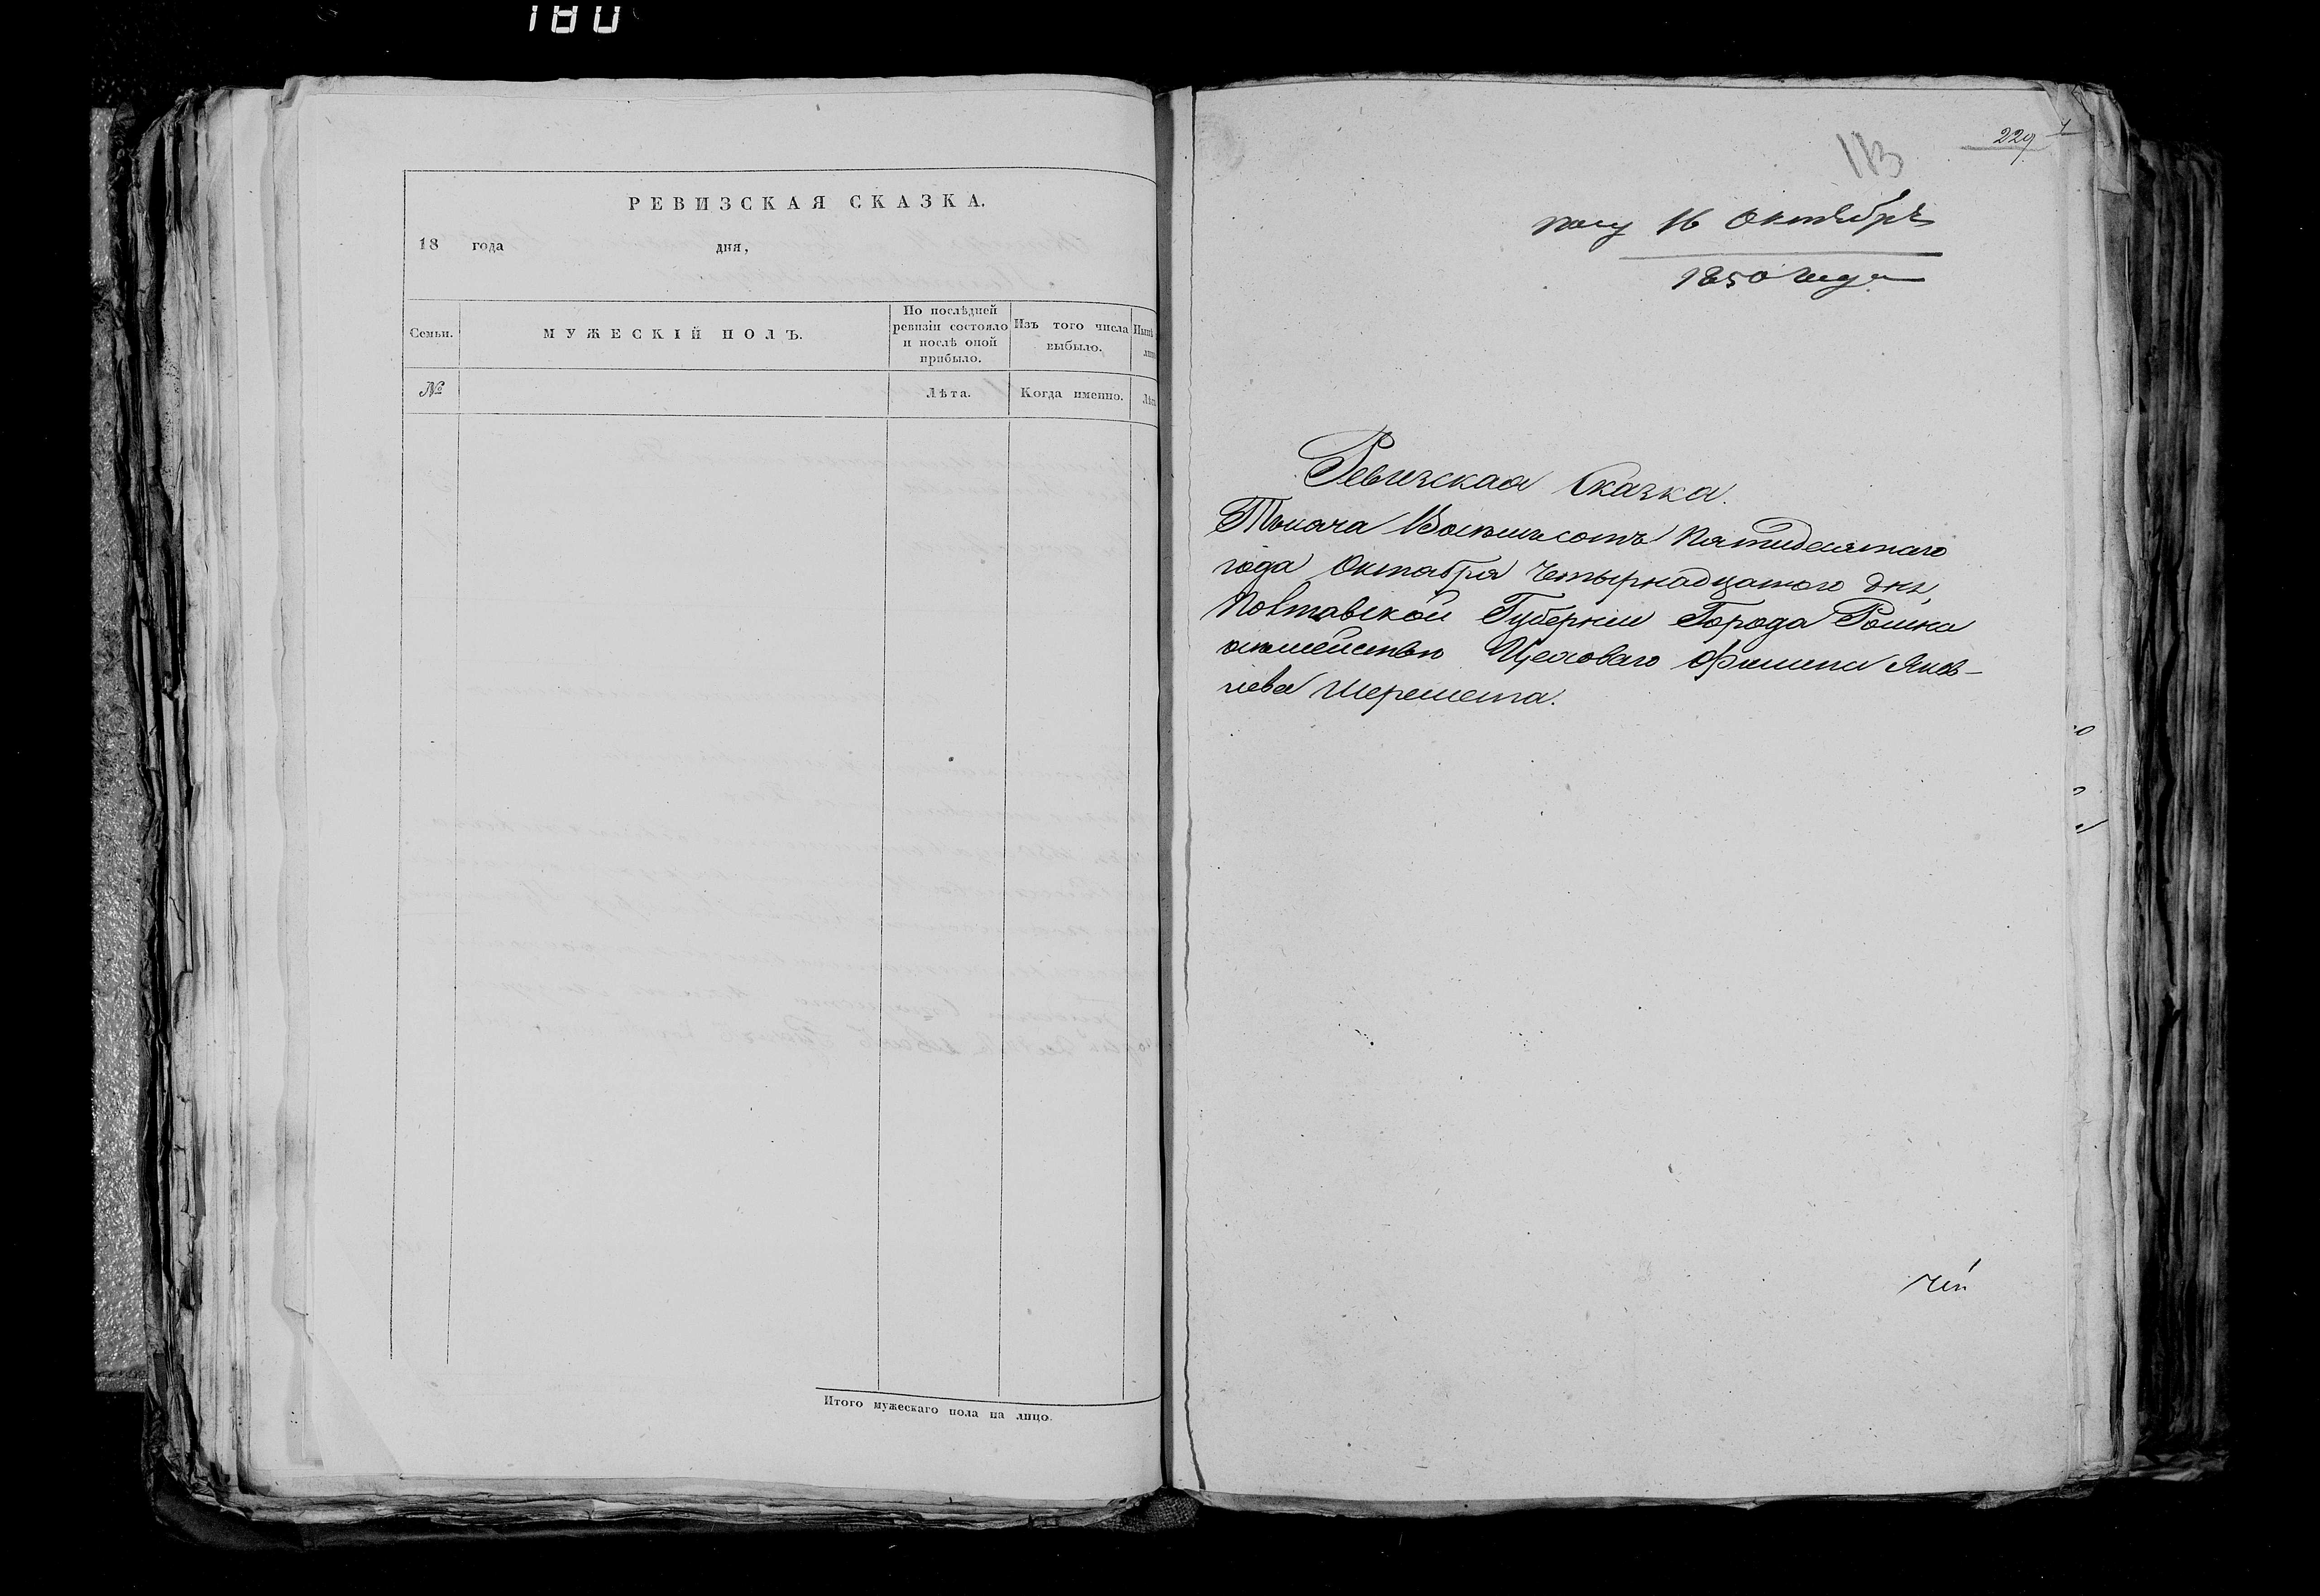 180
РЕВИЗСКАЯ СКАЗКА.
18 года дня,
Семьи.
МУЖЕСКІЙ ПОЛЪ.
По послѣдней
ревизіи состояло
и послѣ оной
прибыло.
Изъ того числа
выбыло.
№
Лѣта.
Когда именно.
Итого мужескаго пола на лицо.
229
113
пол 16 Октября
1850 года
Ревизская Сказка.
Тысяча Восемьсотъ Пятидесятаго
года Октября Четырнадцатого дня,
Полтавской Губерніи Города Ромна
осемействѣ Цеховаго Филипа Яков-
лева Шеремета.